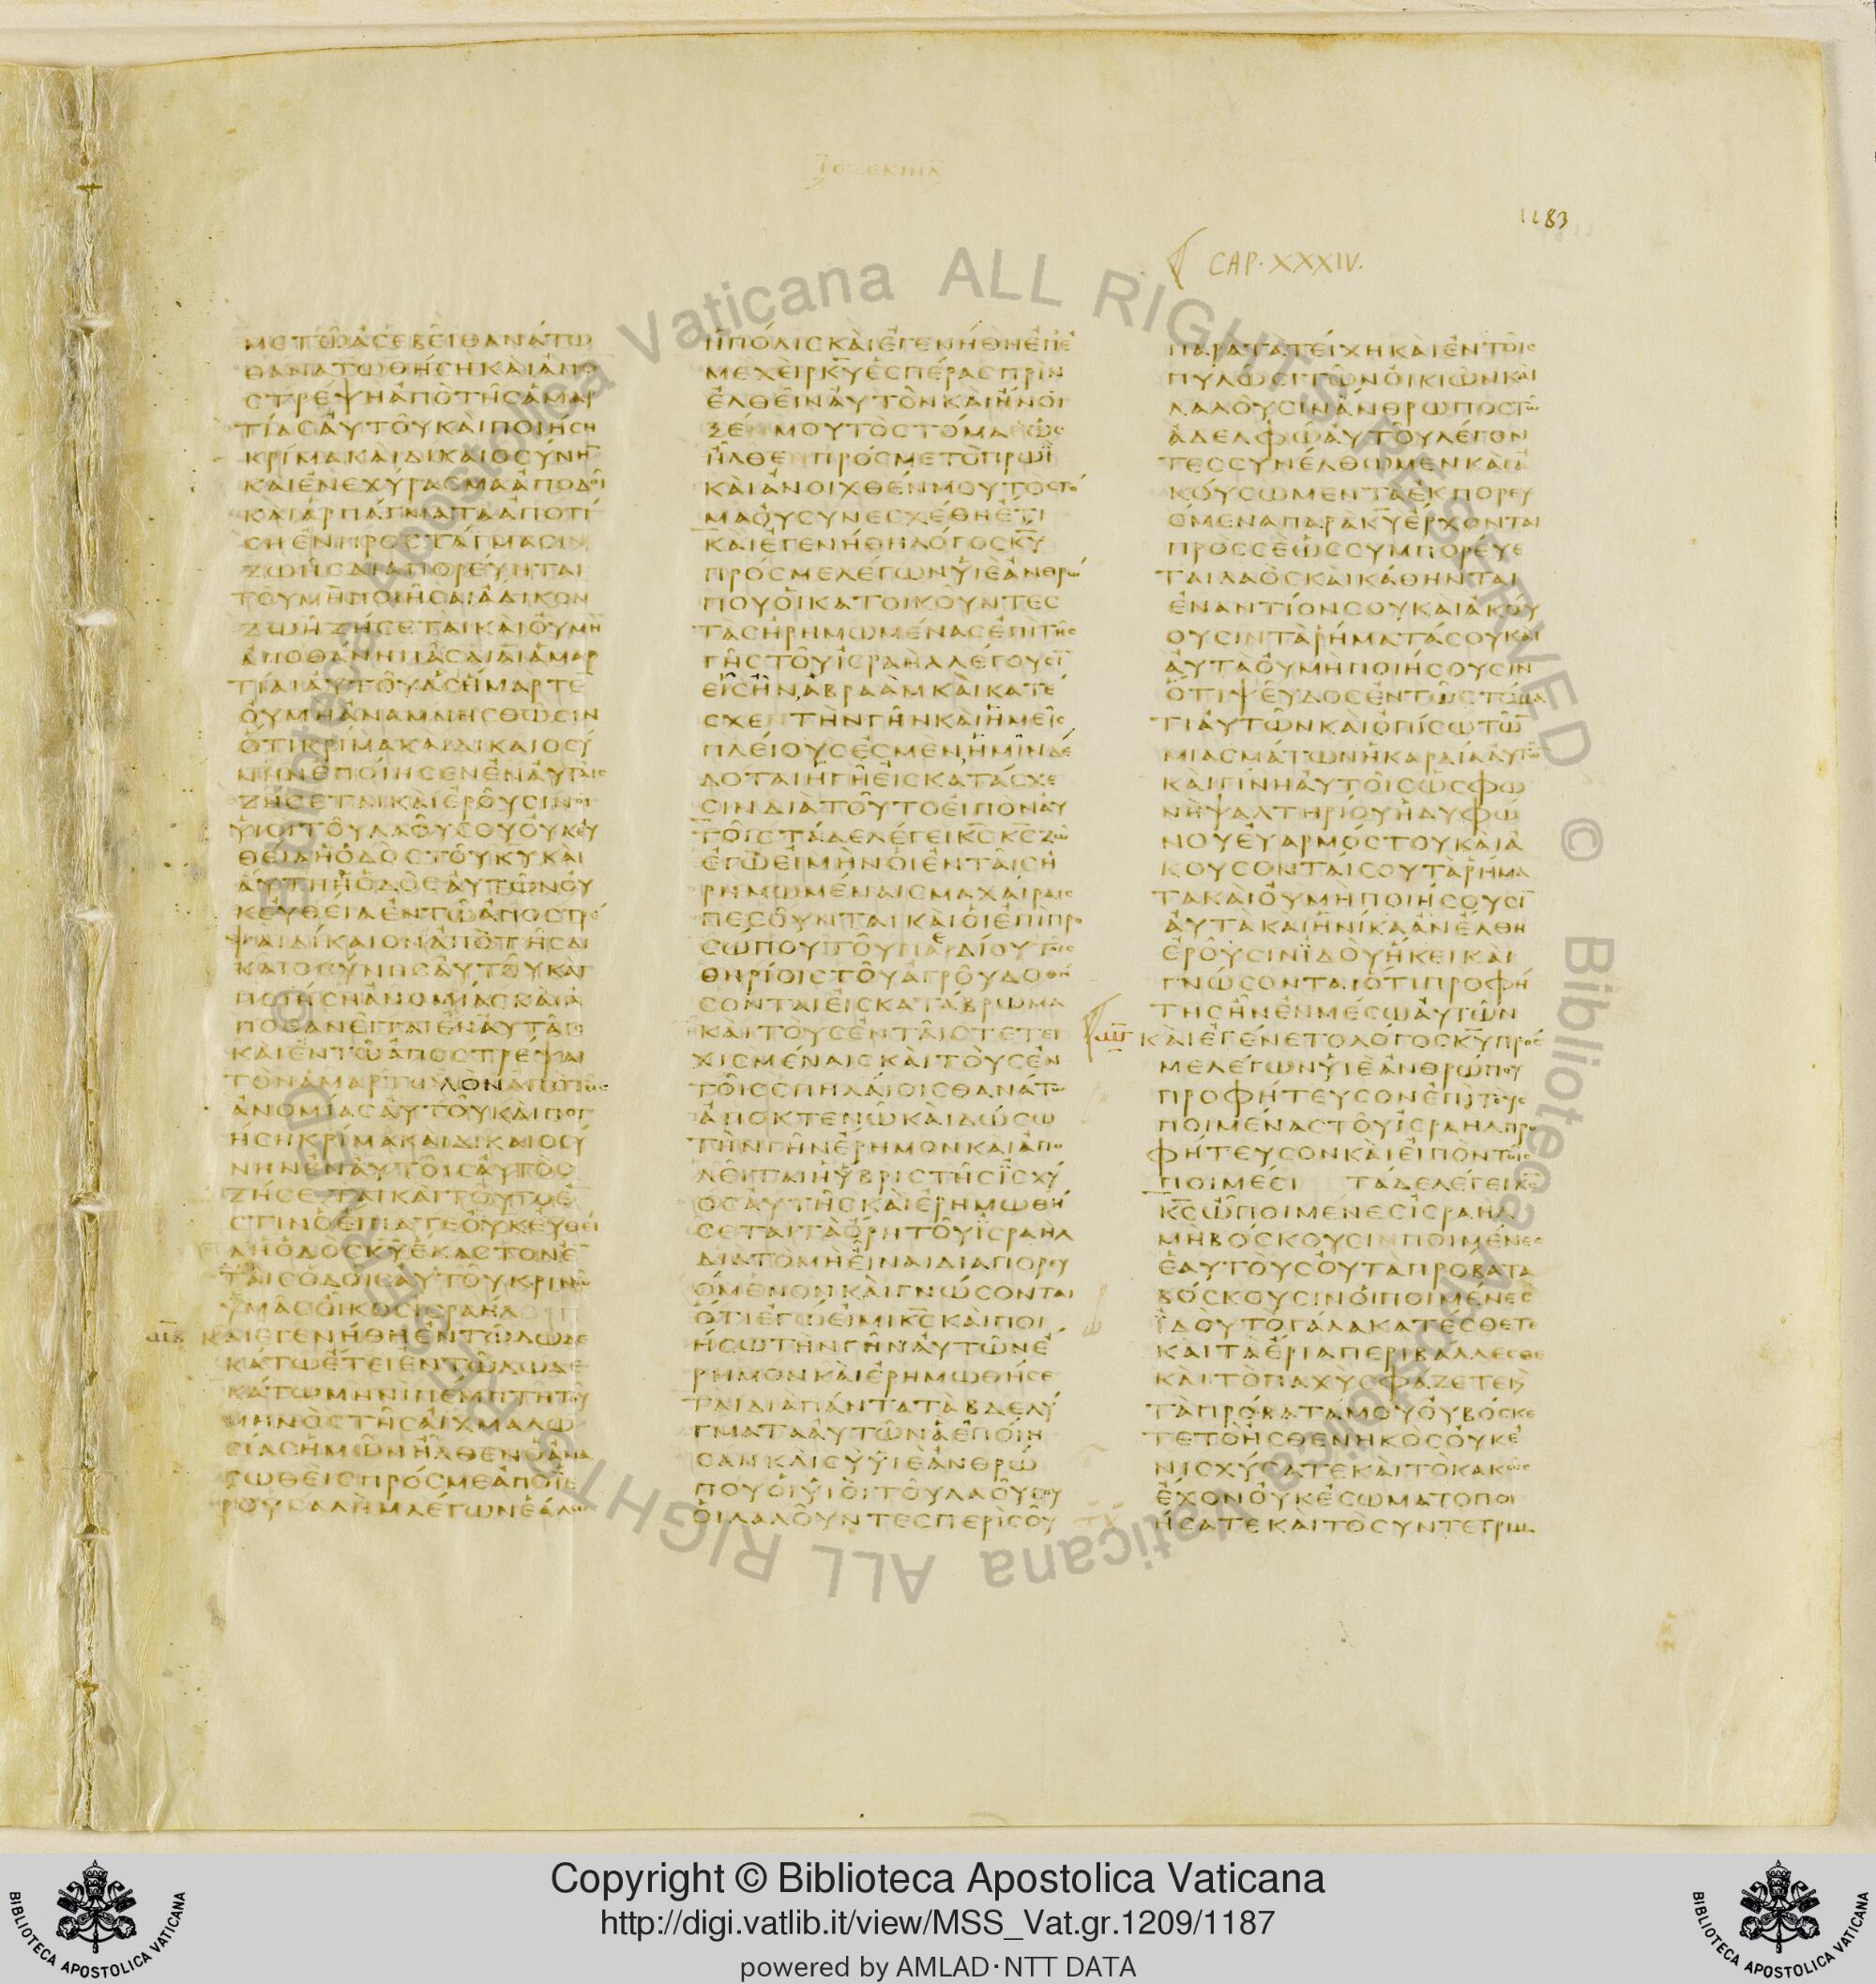 ἸΕΖΕΚΙΗΛ
1183
CAP. XXXIV.
ΜΕΤΩΑΣΕΒΕΙΘΑΝΑΤΩ
ΘΑΝΑΤΩΘΗΣΗΚΑΙΑΠΟ
ΣΤΡΕΨΗΑΠΟΤΗΣΑΜΑΡ
ΤΙΑΣΑΥΤΟΥΚΑΙΠΟΙΗΣΗ
ΚΡΙΜΑΚΑΙΔΙΚΑΙΟΣΥΝΗ̅
ΚΑΙΕΝΕΧΥΡΑΣΜΑΑΠΟΔΟΙ
ΚΑΙΑΡΠΑΓΜΑΤΑΑΠΟΤΙ
ΣΗΕΝΠΡΟΣΤΑΓΜΑΣΙΝ
ΖΩΗΣΔΙΑΠΟΡΕΥΗΤΑΙ
ΤΟΥΜΗΠΟΙΗΣΑΙΑΔΙΚΟΝ
ΖΩΗΖΗΣΕΤΑΙΚΑΙΟΥΜΗ
ΑΠΟΘΑΝΗΠΑΣΑΙΑΙΑΜΑΡ
ΤΙΑΙΑΥΤΟΥΑΣΗΜΑΡΤΕ̅
ΟΥΜΗΑΝΑΜΝΗΣΘΩΣΙΝ
ΟΤΙΚΡΙΜΑΚΑΙΔΙΚΑΙΟΣΥ
ΝΗΝΕΠΟΙΗΣΕΝΕΝΑΥΤΑΙΣ
ΖΗΣΕΤΑΙΚΑΙΕΡΟΥΣΙΝΟΙ
ΥΙΟΙΤΟΥΛΑΟΥΣΟΥΟΥΚΕΥ
ΘΕΙΑΗΟΔΟΣΤΟΥΚ̅Υ̅ΚΑΙ
ΑΥΤΗΗΟΔΟΣΑΥΤΩΝΟΥ
ΚΕΥΘΕΙΑΕΝΤΩΑΠΟΣΤΡΕ
ΨΑΙΔΙΚΑΙΟΝΑΠΟΤΗΣΔΙ
ΚΑΙΟΣΥΝΗΣΑΥΤΟΥΚΑΙ
ΠΟΙΗΣΗΑΝΟΜΙΑΣΚΑΙΑ
ΠΟΘΑΝΕΙΤΑΙΕΝΑΥΤΑΙΣ
ΚΑΙΕΝΤΩΑΠΟΣΤΡΕΨΑΙ
ΤΟΝΑΜΑΡΤΩΛΟΝΑΠΟΤΗΣ
ΑΝΟΜΙΑΣΑΥΤΟΥΚΑΙΠΟΙ
ΗΣΗΚΡΙΜΑΚΑΙΔΙΚΑΙΟΣΥ
ΝΗΝΕΝΑΥΤΟΙΣΑΥΤΟΣ
ΖΗΣΕΤΑΙΚΑΙΤΟΥΤΟΕ
ΣΤΙΝΟΕΙΠΑΤΕΟΥΚΕΥΘΕΙ
ΑΗΟΔΟΣΚ̅Υ̅ΕΚΑΣΤΟΝΕ̅
ΤΑΙΣΟΔΟΙΣΑΥΤΟΥΚΡΙΝΩ
ΥΜΑΣΟΙΚΟΣΙΣΡΑΗΛ
ΚΑΙΕΓΕΝΗΘΗΕΝΤΩΔΩΔΕ
ΚΑΤΩΕΤΕΙΕΝΤΩΔΩΔΕ
ΚΑΤΩΜΗΝΙΠΕΜΠΤΗΤΟΥ
ΜΗΝΟΣΤΗΣΑΙΧΜΑΛΩ
ΣΙΑΣΗΜΩΝΗΛΘΕΝΟΑΝΑ
ΣΩΘΕΙΣΠΡΟΣΜΕΑΠΟΙΕ
ΡΟΥΣΑΛΗΜΛΕΓΩΝΕΑΛΩ
ΗΠΟΛΙΣΚΑΙΕΓΕΝΗΘΗΕΠΕ
ΜΕΧΕΙΡΚ̅Υ̅ΕΣΠΕΡΑΣΠΡΙΝ
ΕΛΘΕΙΝΑΥΤΟΝΚΑΙΗΝΟΙ
ΞΕΜΟΥΤΟΣΤΟΜΑΕΩΣ
ΗΛΘΕΠΡΟΣΜΕΤΟΠΡΩΪ
ΚΑΙΑΝΟΙΧΘΕΝΜΟΥΤΟΣΤΟ
ΜΑΟΥΣΥΝΕΣΧΕΘΗΕΤΙ
ΚΑΙΕΓΕΝΗΘΗΛΟΓΟΣΚ̅Υ̅
ΠΡΟΣΜΕΛΕΓΩΝΥΙΕΑΝΘΡΩ
ΠΟΥΟΙΚΑΤΟΙΚΟΥΝΤΕΣ
ΤΑΣΗΡΗΜΩΜΕΝΑΣΕΠΙΤΗΣ
ΓΗΣΤΟΥΙΣΡΑΗΛΛΕΓΟΥΣΙ̅
ΕΙΣΗΝΑΒΡΑΑΜΚΑΙΚΑΤΕ
ΣΧΕΤΗΝΓΗΝΚΑΙΗΜΕΙΣ
ΠΛΕΙΟΥΣΕΣΜΕΝΗΜΙΝΔΕ
ΔΟΤΑΙΗΓΗΕΙΣΚΑΤΑΣΧΕ
ΣΙΝΔΙΑΤΟΥΤΟΕΙΠΟΝΑΥ
ΤΟΙΣΤΑΔΕΛΕΓΕΙΚ̅Σ̅Κ̅Σ̅ΖΩ
ΕΓΩΕΙΜΗΝΟΙΕΝΤΑΙΣΗ
ΡΗΜΩΜΕΝΑΙΣΜΑΧΑΙΡΑΙΣ
ΠΕΣΟΥΝΤΑΙΚΑΙΟΙΕΠΙΠΡΟ
ΣΩΠΟΥΤΟΥΠΑΙΔΙΟΥΤΟΙΣ
ΘΗΡΙΟΙΣΤΟΥΑΓΡΟΥΔΟΘΗ
ΣΟΝΤΑΙΕΙΣΚΑΤΑΒΡΩΜΑ
ΚΑΙΤΟΥΣΕΝΤΑΙΣΤΕΤΕΙ
ΧΙΣΜΕΝΑΙΣΚΑΙΤΟΥΣΕΝ
ΤΟΙΣΣΠΗΛΑΙΟΙΣΘΑΝΑΤΩ
ΑΠΟΚΤΕΝΩΚΑΙΔΩΣΩ
ΤΗΝΓΗΝΕΡΗΜΟΝΚΑΙΑΠΟ
ΛΕΙΤΑΙΗΥΒΡΙΣΤΗΣΙΣΧΥ
ΟΣΑΥΤΗΣΚΑΙΕΡΗΜΩΘΗ
ΣΕΤΑΙΤΑΟΡΗΤΟΥΙΣΡΑΗΛ
ΔΙΑΤΟΜΗΕΙΝΑΙΔΙΑΠΟΡΕΥ
ΟΜΕΝΟΝΚΑΙΓΝΩΣΟΝΤΑΙ
ΟΤΙΕΓΩΕΙΜΙΚ̅Σ̅ΚΑΙΠΟΙ
ΗΣΩΤΗΝΓΗΝΑΥΤΩΝΕ
ΡΗΜΟΝΚΑΙΕΡΗΜΩΘΗΣΕ
ΤΑΙΔΙΑΠΑΝΤΑΤΑΒΔΕΛΥ
ΓΜΑΤΑΑΥΤΩΝΑΕΠΟΙΗ
ΣΑΝΚΑΙΣΥΥΙΕΑΝΘΡΩ
ΠΟΥΟΙΥΙΟΙΤΟΥΛΑΟΥΣΟΥ
ΟΙΛΑΛΟΥΝΤΕΣΠΕΡΙΣΟΥ
ΠΑΡΑΤΑΤΕΙΧΗΚΑΙΕΝΤΟΙΣ
ΠΥΛΩΣΙΤΩΝΟΙΚΙΩΝΚΑΙ
ΛΑΛΟΥΣΙΝΑΝΘΡΩΠΟΣΤΩ
ΑΔΕΛΦΩΑΥΤΟΥΛΕΓΟΝ
ΤΕΣΣΥΝΕΛΘΩΜΕΝΚΑΙΑ
ΚΟΥΣΩΜΕΝΤΑΕΚΠΟΡΕΥ
ΟΜΕΝΑΠΑΡΑΚ̅Υ̅ΕΡΧΟΝΤΑΙ
ΠΡΟΣΣΕΩΣΣΥΜΠΟΡΕΥΕ
ΤΑΙΛΑΟΣΚΑΙΚΑΘΗΝΤΑΙ
ΕΝΑΝΤΙΟΝΣΟΥΚΑΙΑΚΟΥ
ΟΥΣΙΝΤΑΡΗΜΑΤΑΣΟΥΚΑΙ
ΑΥΤΑΟΥΜΗΠΟΙΗΣΟΥΣΙΝ
ΟΤΙΨΕΥΔΟΣΕΝΤΩΣΤΟΜΑ
ΤΙΑΥΤΩΝΚΑΙΟΠΙΣΩΤΩ̅
ΜΙΑΣΜΑΤΩΝΗΚΑΡΔΙΑΑΥΤΩ̅
ΚΑΙΓΙΝΗΑΥΤΟΙΣΩΣΦΩ
ΝΗΨΑΛΤΗΡΙΟΥΗΔΥΦΩ
ΝΟΥΕΥΑΡΜΟΣΤΟΥΚΑΙΑ
ΚΟΥΣΟΝΤΑΙΣΟΥΤΑΡΗΜΑ
ΤΑΚΑΙΟΥΜΗΠΟΙΗΣΟΥΣΙ̅
ΑΥΤΑΚΑΙΗΝΙΚΑΑΝΕΛΘΗ
ΕΡΟΥΣΙΝΪΔΟΥΗΚΕΙΚΑΙ
ΓΝΩΣΟΝΤΑΙΟΤΙΠΡΟΦΗ
ΤΗΣΗΝΕΝΜΕΣΩΑΥΤΩΝ
ΚΑΙΕΓΕΝΕΤΟΛΟΓΟΣΚ̅Υ̅ΠΡΟΣ
ΜΕΛΕΓΩΝΥΙΕΑΝΘΡΩΠΟΥ
ΠΡΟΦΗΤΕΥΣΟΝΕΠΙΤΟΥΣ
ΠΟΙΜΕΝΑΣΤΟΥΙΣΡΑΗΛΠΡΟ
ΦΗΤΕΥΣΟΝΚΑΙΕΙΠΟΝΤΟΙΣ
ΠΟΙΜΕΣΙ ΤΑΔΕΛΕΓΕΙΚ̅Σ̅
Κ̅Σ̅ΩΠΟΙΜΕΝΕΣΙΣΡΑΗΛ
ΜΗΒΟΣΚΟΥΣΙΝΠΟΙΜΕΝΕΣ
ΕΑΥΤΟΥΣΟΥΤΑΠΡΟΒΑΤΑ
ΒΟΣΚΟΥΣΙΝΟΙΠΟΙΜΕΝΕΣ
ΪΔΟΥΤΟΓΑΛΑΚΑΤΕΣΘΕΤΕ
ΚΑΙΤΑΕΡΙΑΠΕΡΙΒΑΛΛΕΣΘΕ
ΚΑΙΤΟΠΑΧΥΣΦΑΖΕΤΕΚ
ΤΑΠΡΟΒΑΤΑΜΟΥΟΥΒΟΣΚΕ
ΤΕΤΟΗΣΘΕΝΗΚΟΣΟΥΚΕ
ΝΙΣΧΥΣΑΤΕΚΑΙΤΟΚΑΚΩΣ
ΕΧΟΝΟΥΚΕΣΩΜΑΤΟΠΟΙ
ΗΣΑΤΕΚΑΙΤΟΣΥΝΤΕΤΡΙΜ
Copyright © Biblioteca Apostolica Vaticana
http://digi.vatlib.it/view/MSS_Vat.gr.1209/1187
powered by AMLAD·NTT DATA
BIBLIOTECA APOSTOLICA VATICANA
BIBLIOTECA APOSTOLICA VATICANA
© Biblioteca Apostolica Vaticana ALL RIGHTS RESERVED © Biblioteca Apostolica Vaticana ALL RIGHTS RESERVED